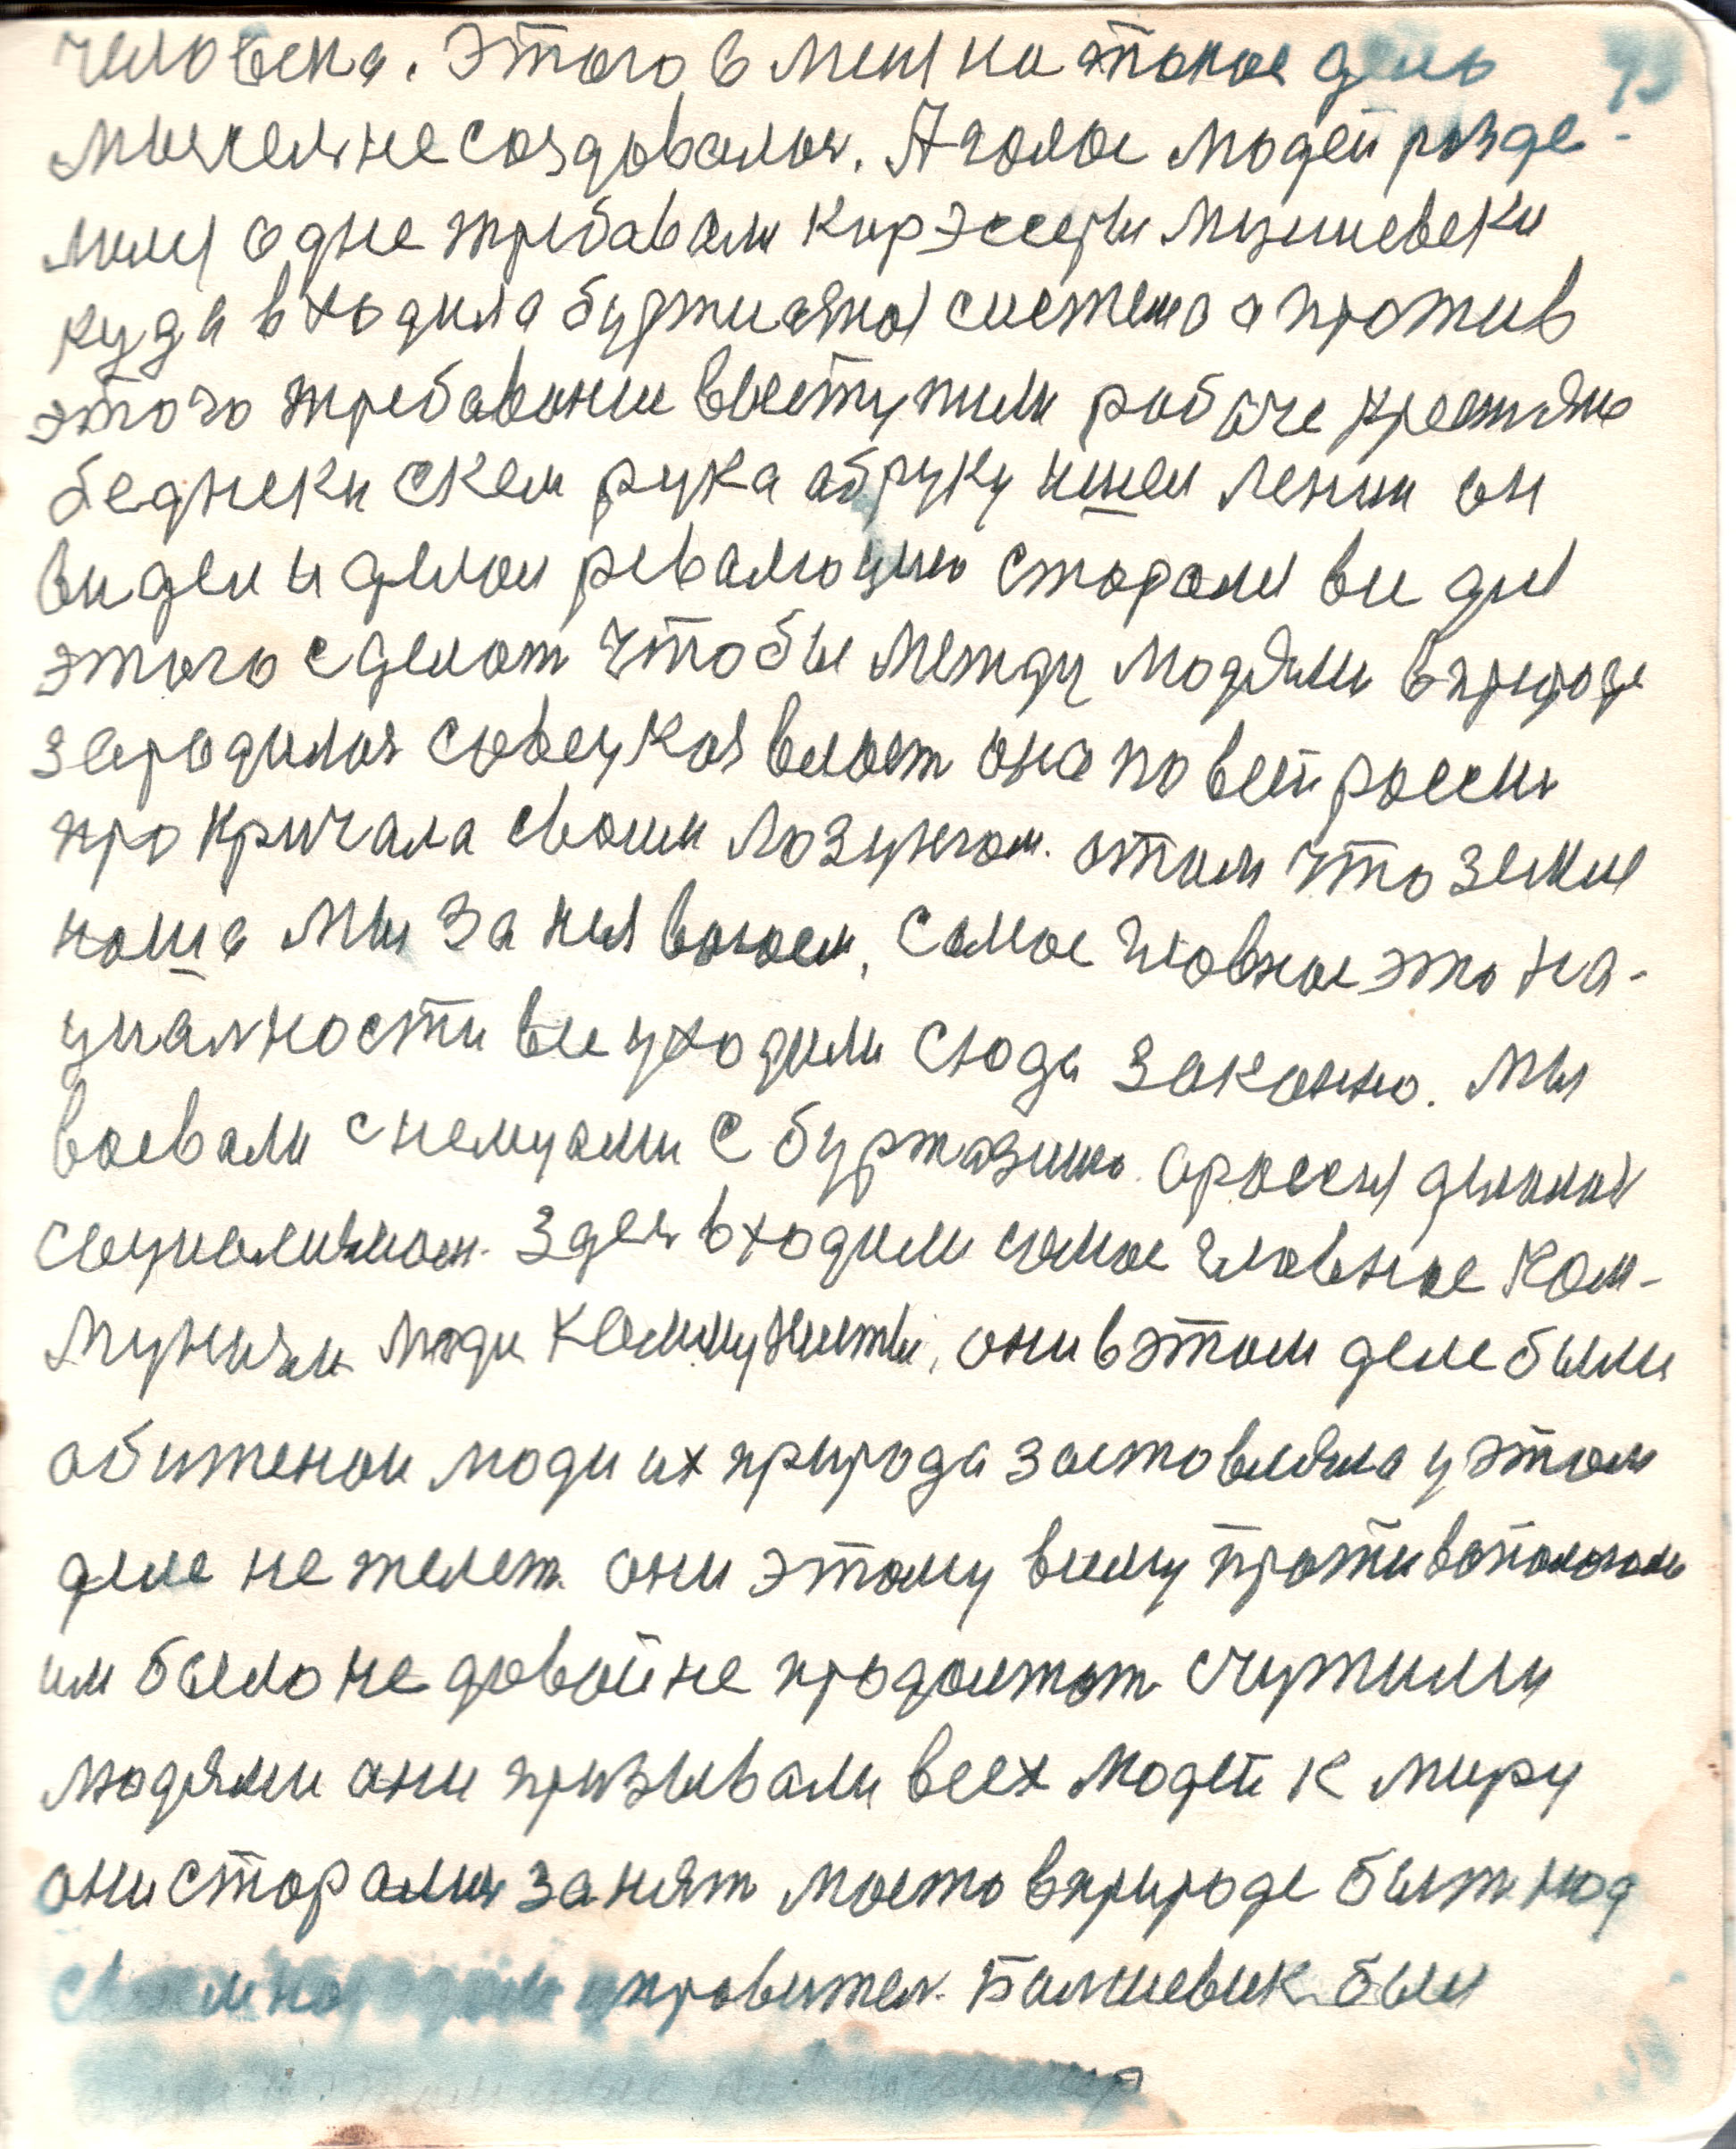 человека. Этого в мени на такое дело 93
мислей не создовалоя. А голос людей разде-
лилсы одне требавали Кирэссеры Мэншевеки
куда входила буржиазноя система а против
этого требавание выступили рабоче крестьяне
беднеки с кем рука аб руку шнел Ленин он
видел и делал ревалюцию старалсы вы дня
этого сделат чтобы между людями в природе
зародилоя совецкоя власт она по всей россии
прокричала своим лозунгом. о том что земля
наша мы за ния воюем, самое главное это на-
циалности вы уходили сюда законно. мы
воевали с немцами с буржазиию. а россия делалоя
социализмом. здеся входили самое главное Ком-
мунизм люди Коммунисты, они в этом деле были
абиженои люди их природа заставляла у этом
деле не желет. они этому вкему противополога
им было не до войне продолжат с чужими
людями они призывали всех людей к миру
они старалися занят место в природе быт над
правител. Балшевик был